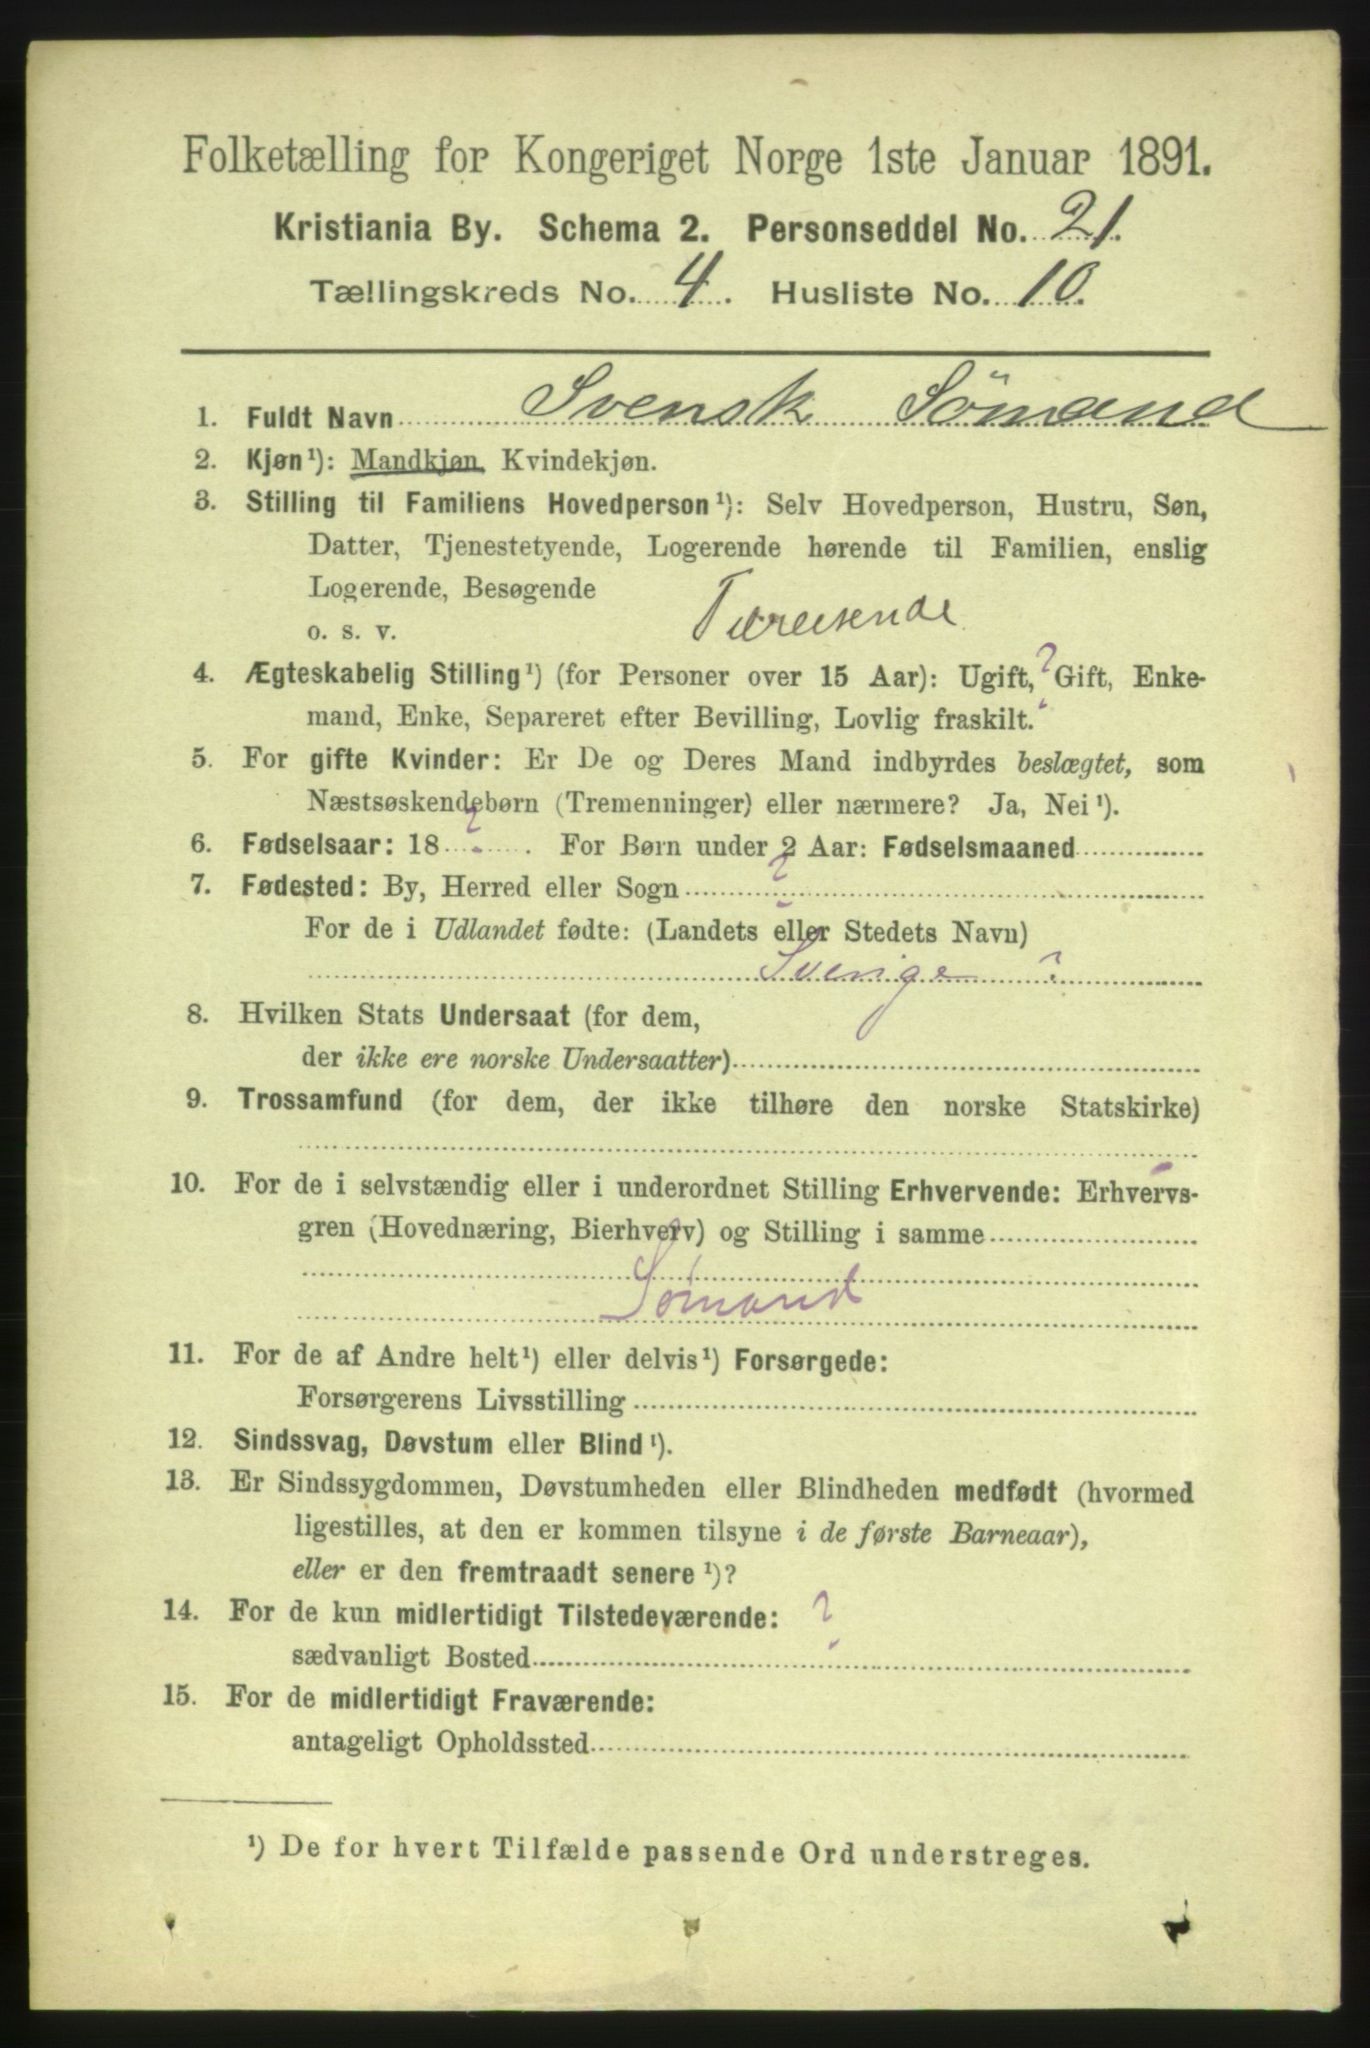 Folketælling for Kongeriget Norge 1ste Januar 1891.
Kristiania By. Schema 2. Personseddel No. 21.
Tællingskreds No. 4. Husliste No. 10.
1. Fuldt Navn Svensk Sömand
2. Kjøn¹): Mandkjøn, Kvindekjøn.
3. Stilling til Familiens Hovedperson¹): Selv Hovedperson, Hustru, Søn,
Datter, Tjenestetyende, Logerende hørende til Familien, enslig
Logerende, Besøgende
o. s. v.
4. Ægteskabelig Stilling¹) (for Personer over 15 Aar): Ugift, ? Gift, Enke-
mand, Enke, Separeret efter Bevilling, Lovlig fraskilt.
5. For gifte Kvinder: Er De og Deres Mand indbyrdes beslægtet, som
Næstsøskendebørn (Tremenninger) eller nærmere? Ja, Nei¹).
6. Fødselsaar: 18 ? . For Børn under 2 Aar: Fødselsmaaned
7. Fødested: By, Herred eller Sogn ?
For de i Udlandet fødte: (Landets eller Stedets Navn)
Sverige ?
8. Hvilken Stats Undersaat (for dem,
der ikke ere norske Undersaatter)
9. Trossamfund (for dem, der ikke tilhøre den norske Statskirke)
10. For de i selvstændig eller i underordnet Stilling Erhvervende: Erhvervs-
gren (Hovednæring, Bierhverv) og Stilling i samme
Sömand
11. For de af Andre helt¹) eller delvis¹) Forsørgede:
Forsørgerens Livsstilling
12. Sindssvag, Døvstum eller Blind¹).
13. Er Sindssygdommen, Døvstumheden eller Blindheden medfødt (hvormed
ligestilles, at den er kommen tilsyne i de første Barneaar),
eller er den fremtraadt senere¹)?
14. For de kun midlertidigt Tilstedeværende: ?
sædvanligt Bosted
15. For de midlertidigt Fraværende:
antageligt Opholdssted
¹) De for hvert Tilfælde passende Ord understreges.